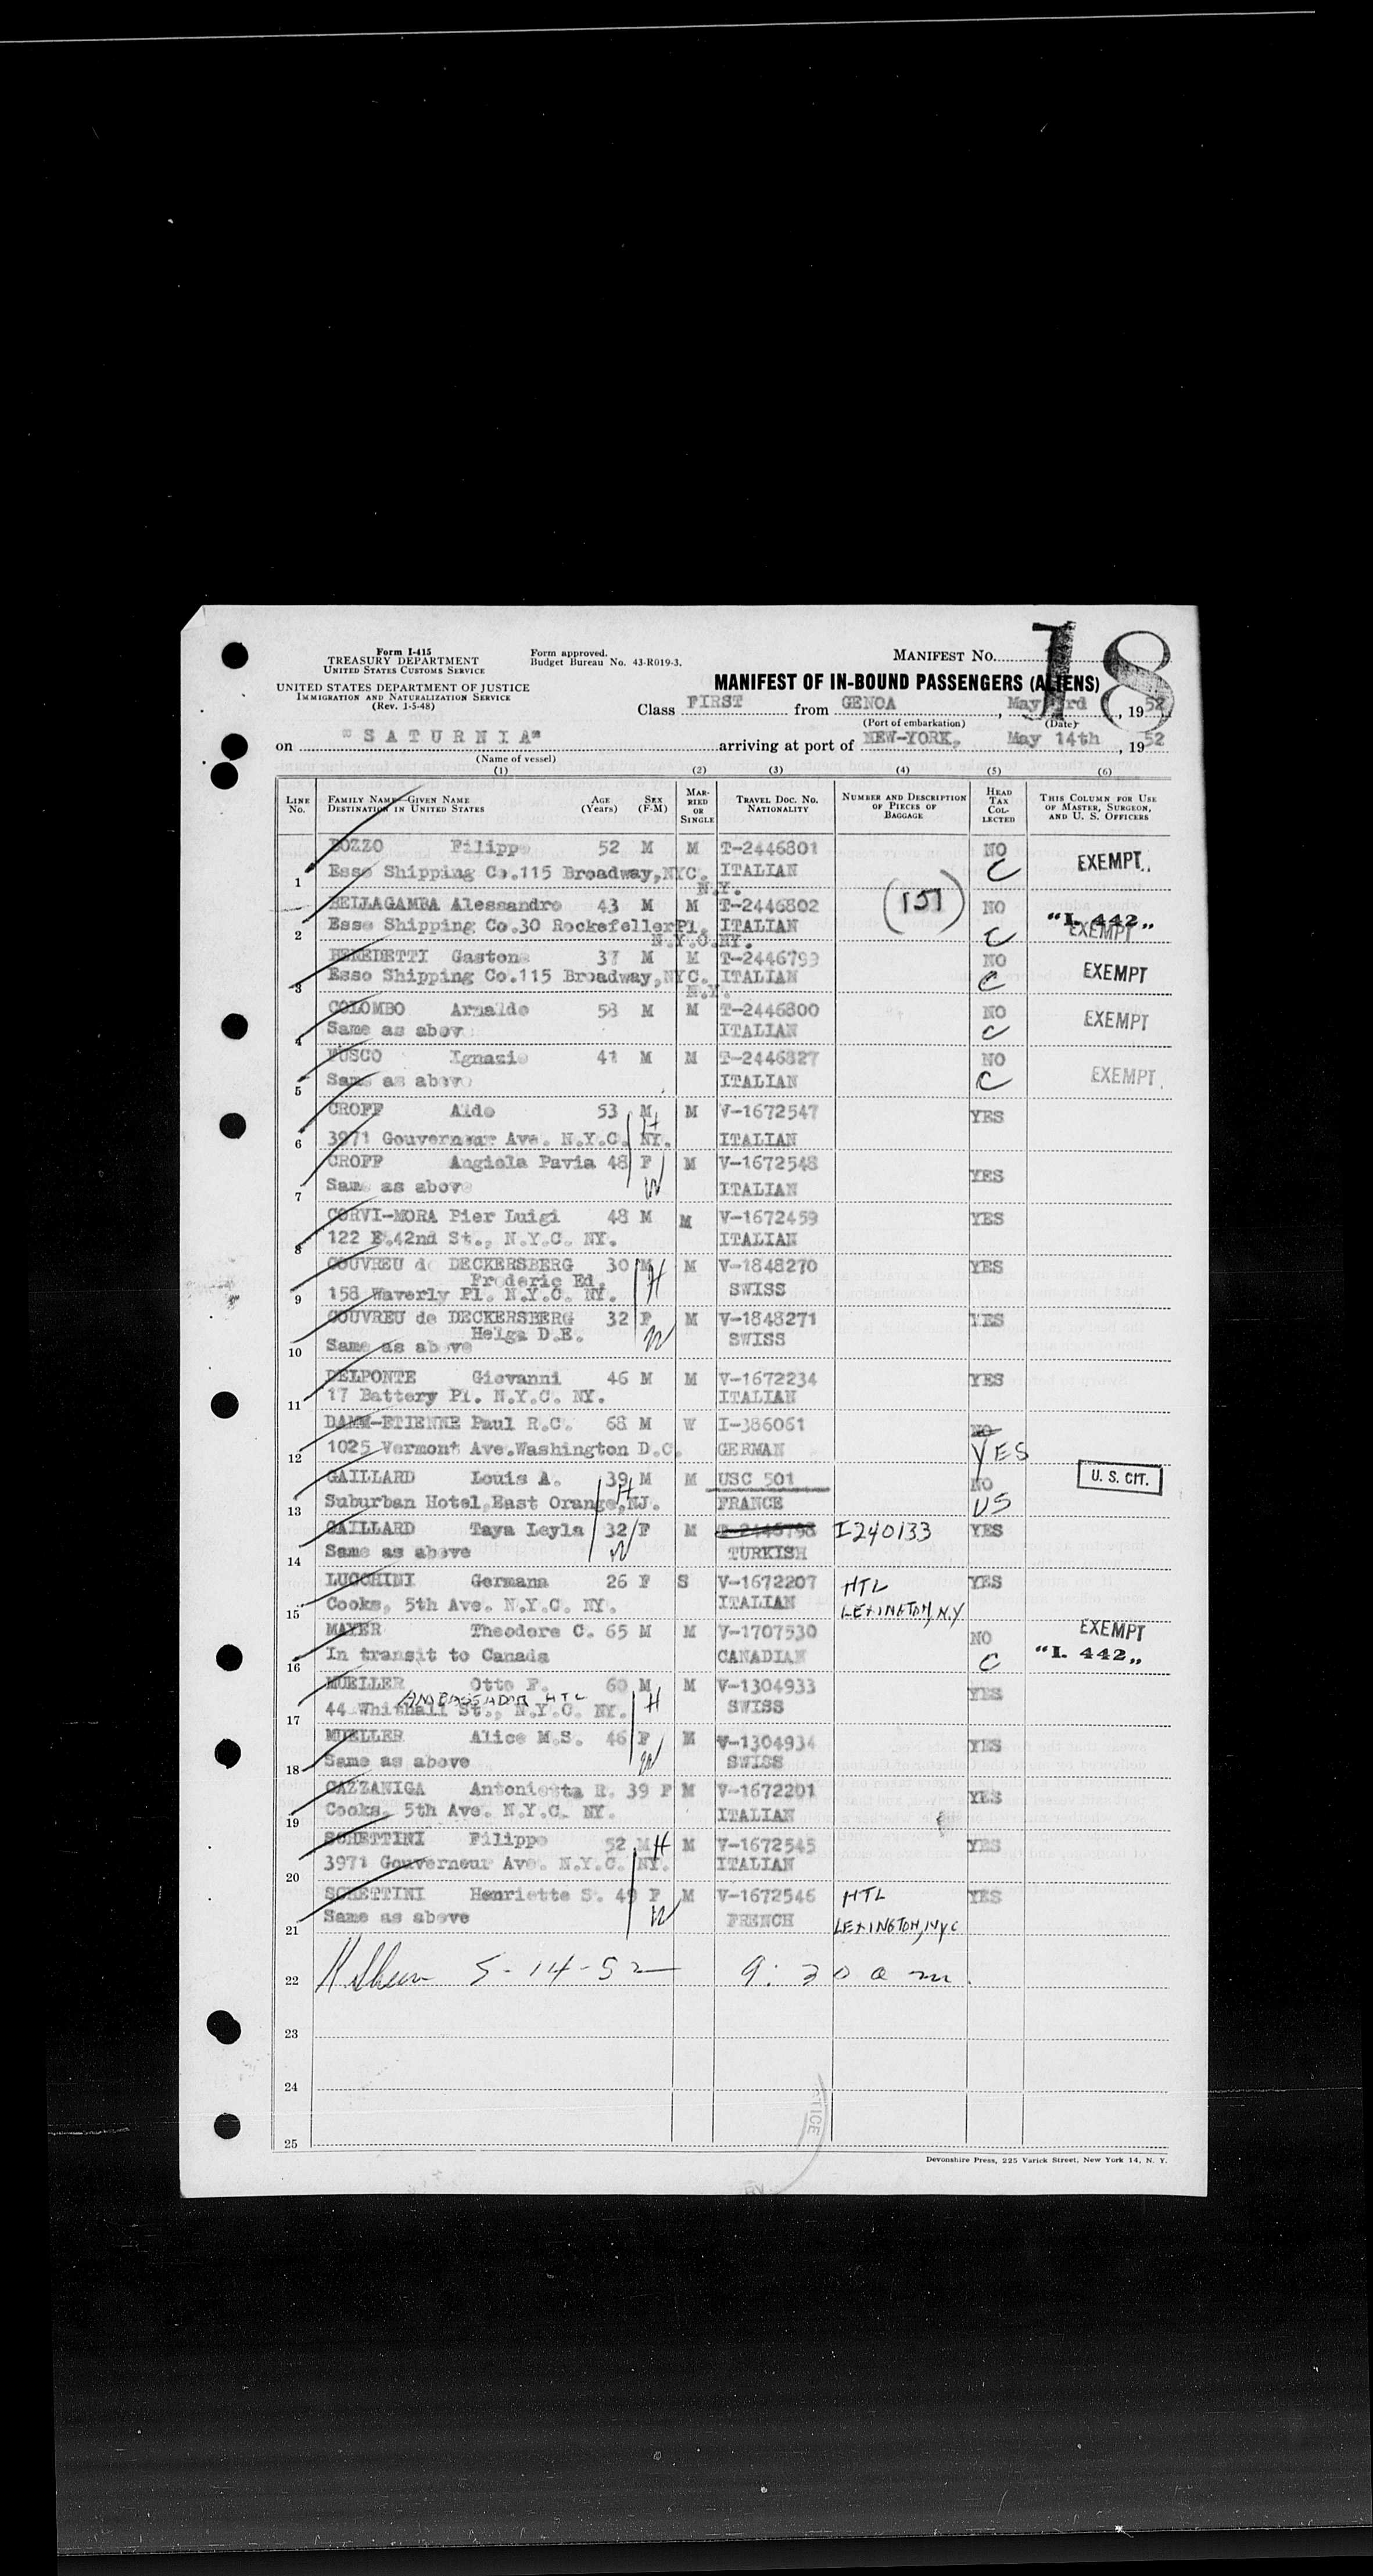 Form I-415
TREASURY DEPARTMENT
UNITED STATES CUSTOMS SERVICE
UNITED STATES DEPARTMENT OF JUSTICE
IMMIGRATION AND NATURALIZATION SERVICE
(Rev. 1-5-48)
Form approved.
Budget Bureau No. 43-R019-3.
MANIFEST NO. 18
MANIFEST OF IN-BOUND PASSENGERS (ALIENS)
Class FIRST from GENOA, May 3rd, 1952
(Port of embarkation) (Date)
on "SATURNIA" arriving at port of NEW-YORK, May 14th, 1952
(Name of vessel)
(1) (2) (3) (4) (5) (6)
LINE NO. FAMILY NAME—GIVEN NAME DESTINATION IN UNITED STATES AGE (Years) SEX (F-M) MARRIED OR SINGLE TRAVEL DOC. NO. NATIONALITY NUMBER AND DESCRIPTION OF PIECES OF BAGGAGE HEAD TAX COLLECTED THIS COLUMN FOR USE OF MASTER, SURGEON, AND U. S. OFFICERS
BOZZO Filippo 52 M M T-2446801 NO EXEMPT
1 Esso Shipping Co.115 Broadway,NYC. N.Y. ITALIAN C
BELLAGAMBA Alessandro 43 M M T-2446802 (151) NO "I. 442"
2 Esso Shipping Co.30 RockefellerPl. N.Y.C.NY. ITALIAN C EXEMPT
BENEDETTI Gastone 37 M M T-2446799 NO EXEMPT
3 Esso Shipping Co.115 Broadway,NYC. N.Y. ITALIAN C
COLOMBO Arnaldo 58 M M T-2446800 NO EXEMPT
4 Same as above ITALIAN C
FUSCO Ignazio 41 M M T-2446827 NO EXEMPT
5 Same as above ITALIAN C
CROFF Aldo 53 M H M V-1672547 YES
6 3971 Gouverneur Ave. N.Y.C. NY. ITALIAN
CROFF Angiola Pavia 48 F W M V-1672548 YES
7 Same as above ITALIAN
CORVI-MORA Pier Luigi 48 M M V-1672459 YES
8 122 E.42nd St., N.Y.C. NY. ITALIAN
COUVREU de DECKERSBERG 30 M H M V-1848270 YES
Frederic Ed.
9 158 Waverly Pl. N.Y.C. NY. SWISS
COUVREU de DECKERSBERG 32 F W M V-1848271 YES
Helga D.E.
10 Same as above SWISS
DELPONTE Giovanni 46 M M V-1672234 YES
11 17 Battery Pl. N.Y.C. NY. ITALIAN
DAMM-ETIENNE Paul R.C. 68 M W I-386061 NO
12 1025 Vermont Ave.Washington D.C. GERMAN YES
GAILLARD Louis A. 39 M H M USC 501 NO U. S. CIT.
13 Suburban Hotel,East Orange,NJ. FRANCE US
GAILLARD Taya Leyla 32 F W M T-2446798 I240133 YES
14 Same as above TURKISH
LUCCHINI Germana 26 F S V-1672207 HTL YES
15 Cooks, 5th Ave. N.Y.C. NY. ITALIAN LEXINGTON, N.Y
MAYER Theodore C. 65 M M V-1707530 NO EXEMPT
16 In transit to Canada CANADIAN C "I. 442"
MUELLER Otto F. 60 M H M V-1304933 YES
AMBASSADOR HTL
17 44 Whithall St., N.Y.C. NY. SWISS
MUELLER Alice M.S. 46 F W M V-1304934 YES
18 Same as above SWISS
CAZZANIGA Antonietta R. 39 F M V-1672201 YES
19 Cooks, 5th Ave. N.Y.C. NY. ITALIAN
SCHETTINI Filippo 52 M H M V-1672545 YES
20 3971 Gouverneur Ave. N.Y.C. NY. ITALIAN
SCHETTINI Henriette S. 49 F W M V-1672546 HTL YES
21 Same as above FRENCH LEXINGTON, NYC
22 5-14-52 9:30 am.
23
24
25
Devonshire Press, 225 Varick Street, New York 14, N. Y.